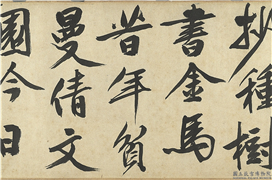 抄種樹
書金馬
昔年貧
曼倩文
園今日
國立故宮博物院